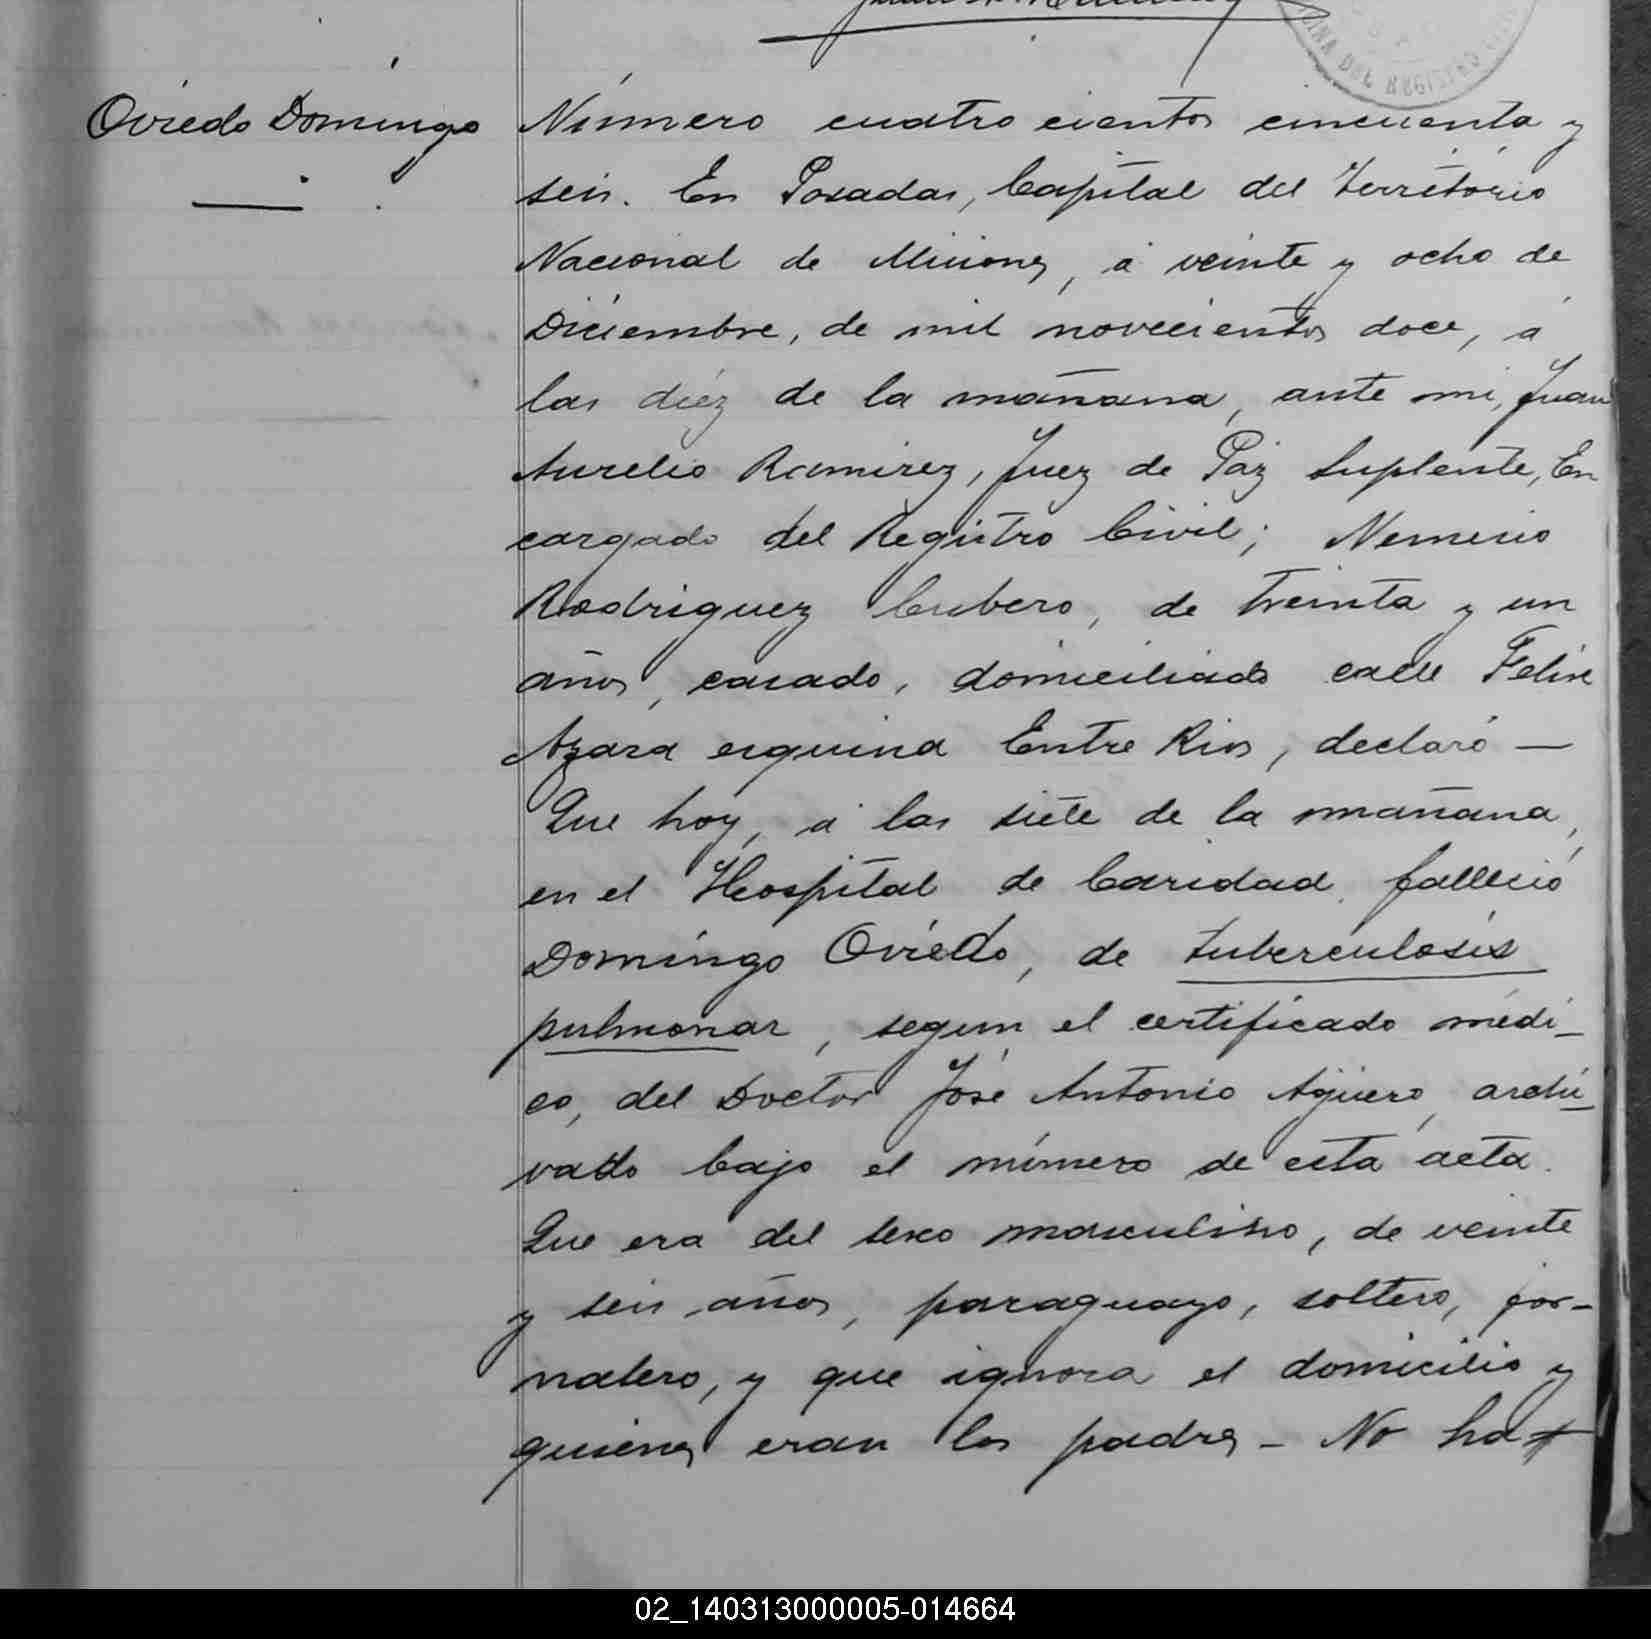 OFICINA DEL REGISTRO CIVIL
Oviedo Domingo
Número cuatro cientos cincuenta y
seis. En Posadas, Capital del Territorio
Nacional de Misiones, á veinte y ocho de
Diciembre, de mil novecientos doce, á
las diez de la mañana, ante mi, Juan
Aurelio Ramirez, Juez de Paz Suplente, En
cargado del Registro Civil; Nemesio
Rodriguez Cubero, de treinta y un
años, casado, domiciliado calle Felix
Azara esquina Entre Rios, declaró —
Que hoy, á las siete de la mañana,
en el Hospital de Caridad, falleció
Domingo Oviedo, de tuberculosis
pulmonar, segun el certificado médi-
co, del Doctor José Antonio Agüero, archi-
vado bajo el número de esta acta.
Que era del sexo masculino, de veinte
y seis años, paraguayo, soltero, jor-
nalero, y que ignora el domicilio y
quienes eran los padres - No ha
02_140313000005-014664